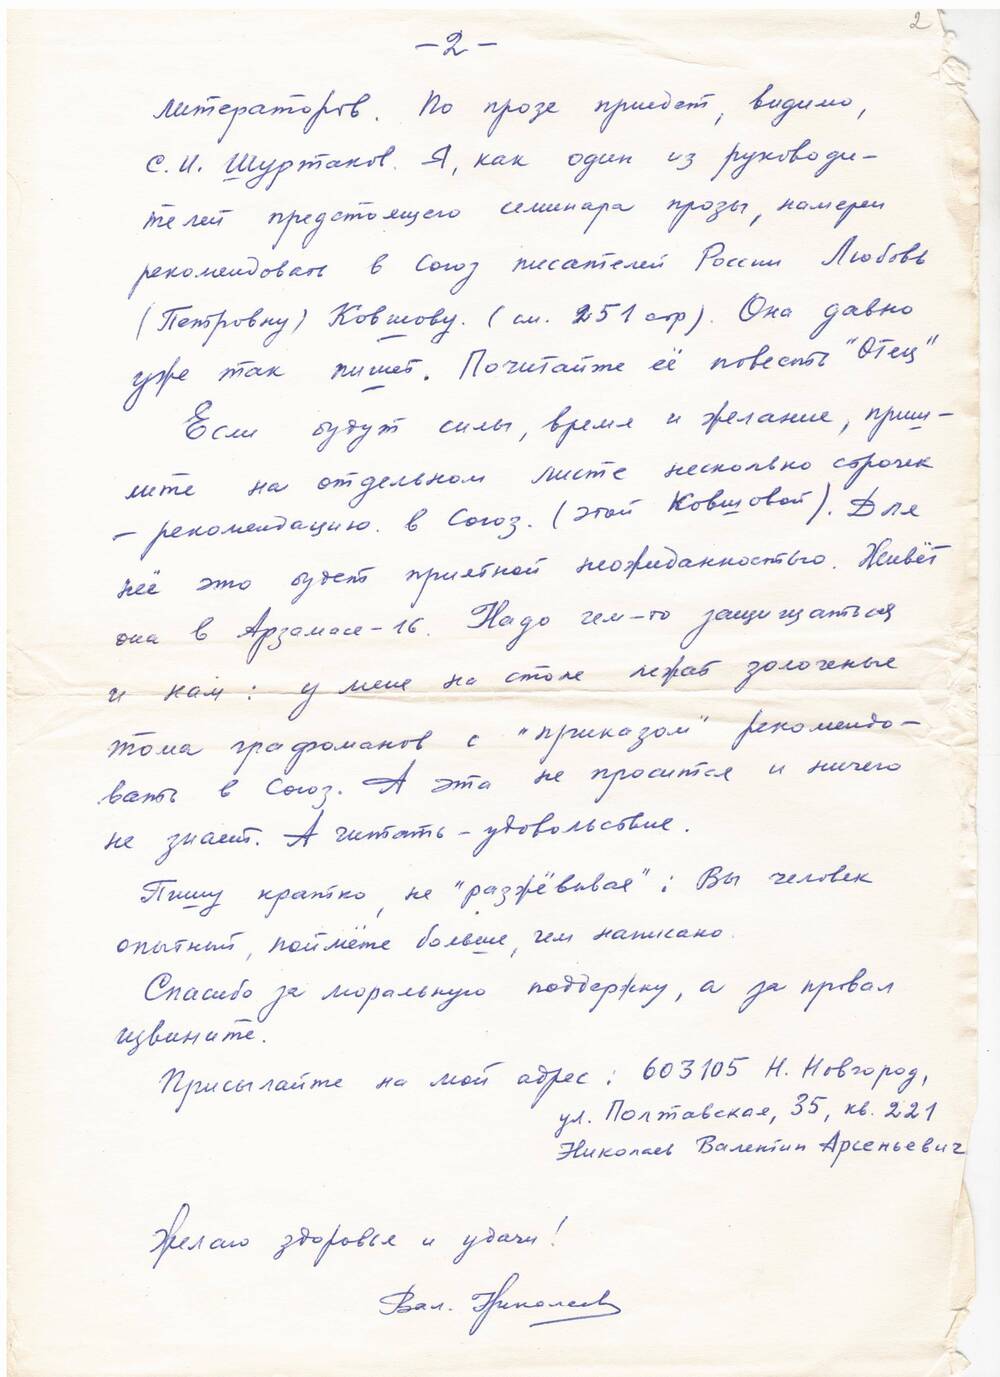 2
-2-
литераторов. По прозе приедет, видимо,
С.И. Шуртаков. Я, как один из руководи-
телей предстоящего семинара прозы, намерен
рекомендовать в Союз писателей России Любовь
(Петровну) Ковшову. (см. 251 стр). Она давно
уже так пишет. Почитайте её повесть "Отец"
Если будут силы, время и желание, приш-
лите на отдельном листе несколько строчек
- рекомендацию в Союз. (этой Ковшовой). Для
неё это будет приятной неожиданностью. Живёт
она в Арзамасе-16. Надо чем-то защищаться
и нам: у меня на столе лежат золоченые
тома графоманов с "приказом" рекомендо-
вать в Союз. А эта не просится и ничего
не знает. А читать - удовольствие.
Пишу кратко, не "разжёвывая": Вы человек
опытный, поймёте больше, чем написано.
Спасибо за моральную поддержку, а за провал
извините.
Присылайте на мой адрес: 603105 Н. Новгород,
ул. Полтавская, 35, кв. 221
Николаев Валентин Арсеньевич
Желаю здоровья и удачи!
Вал. Николаев